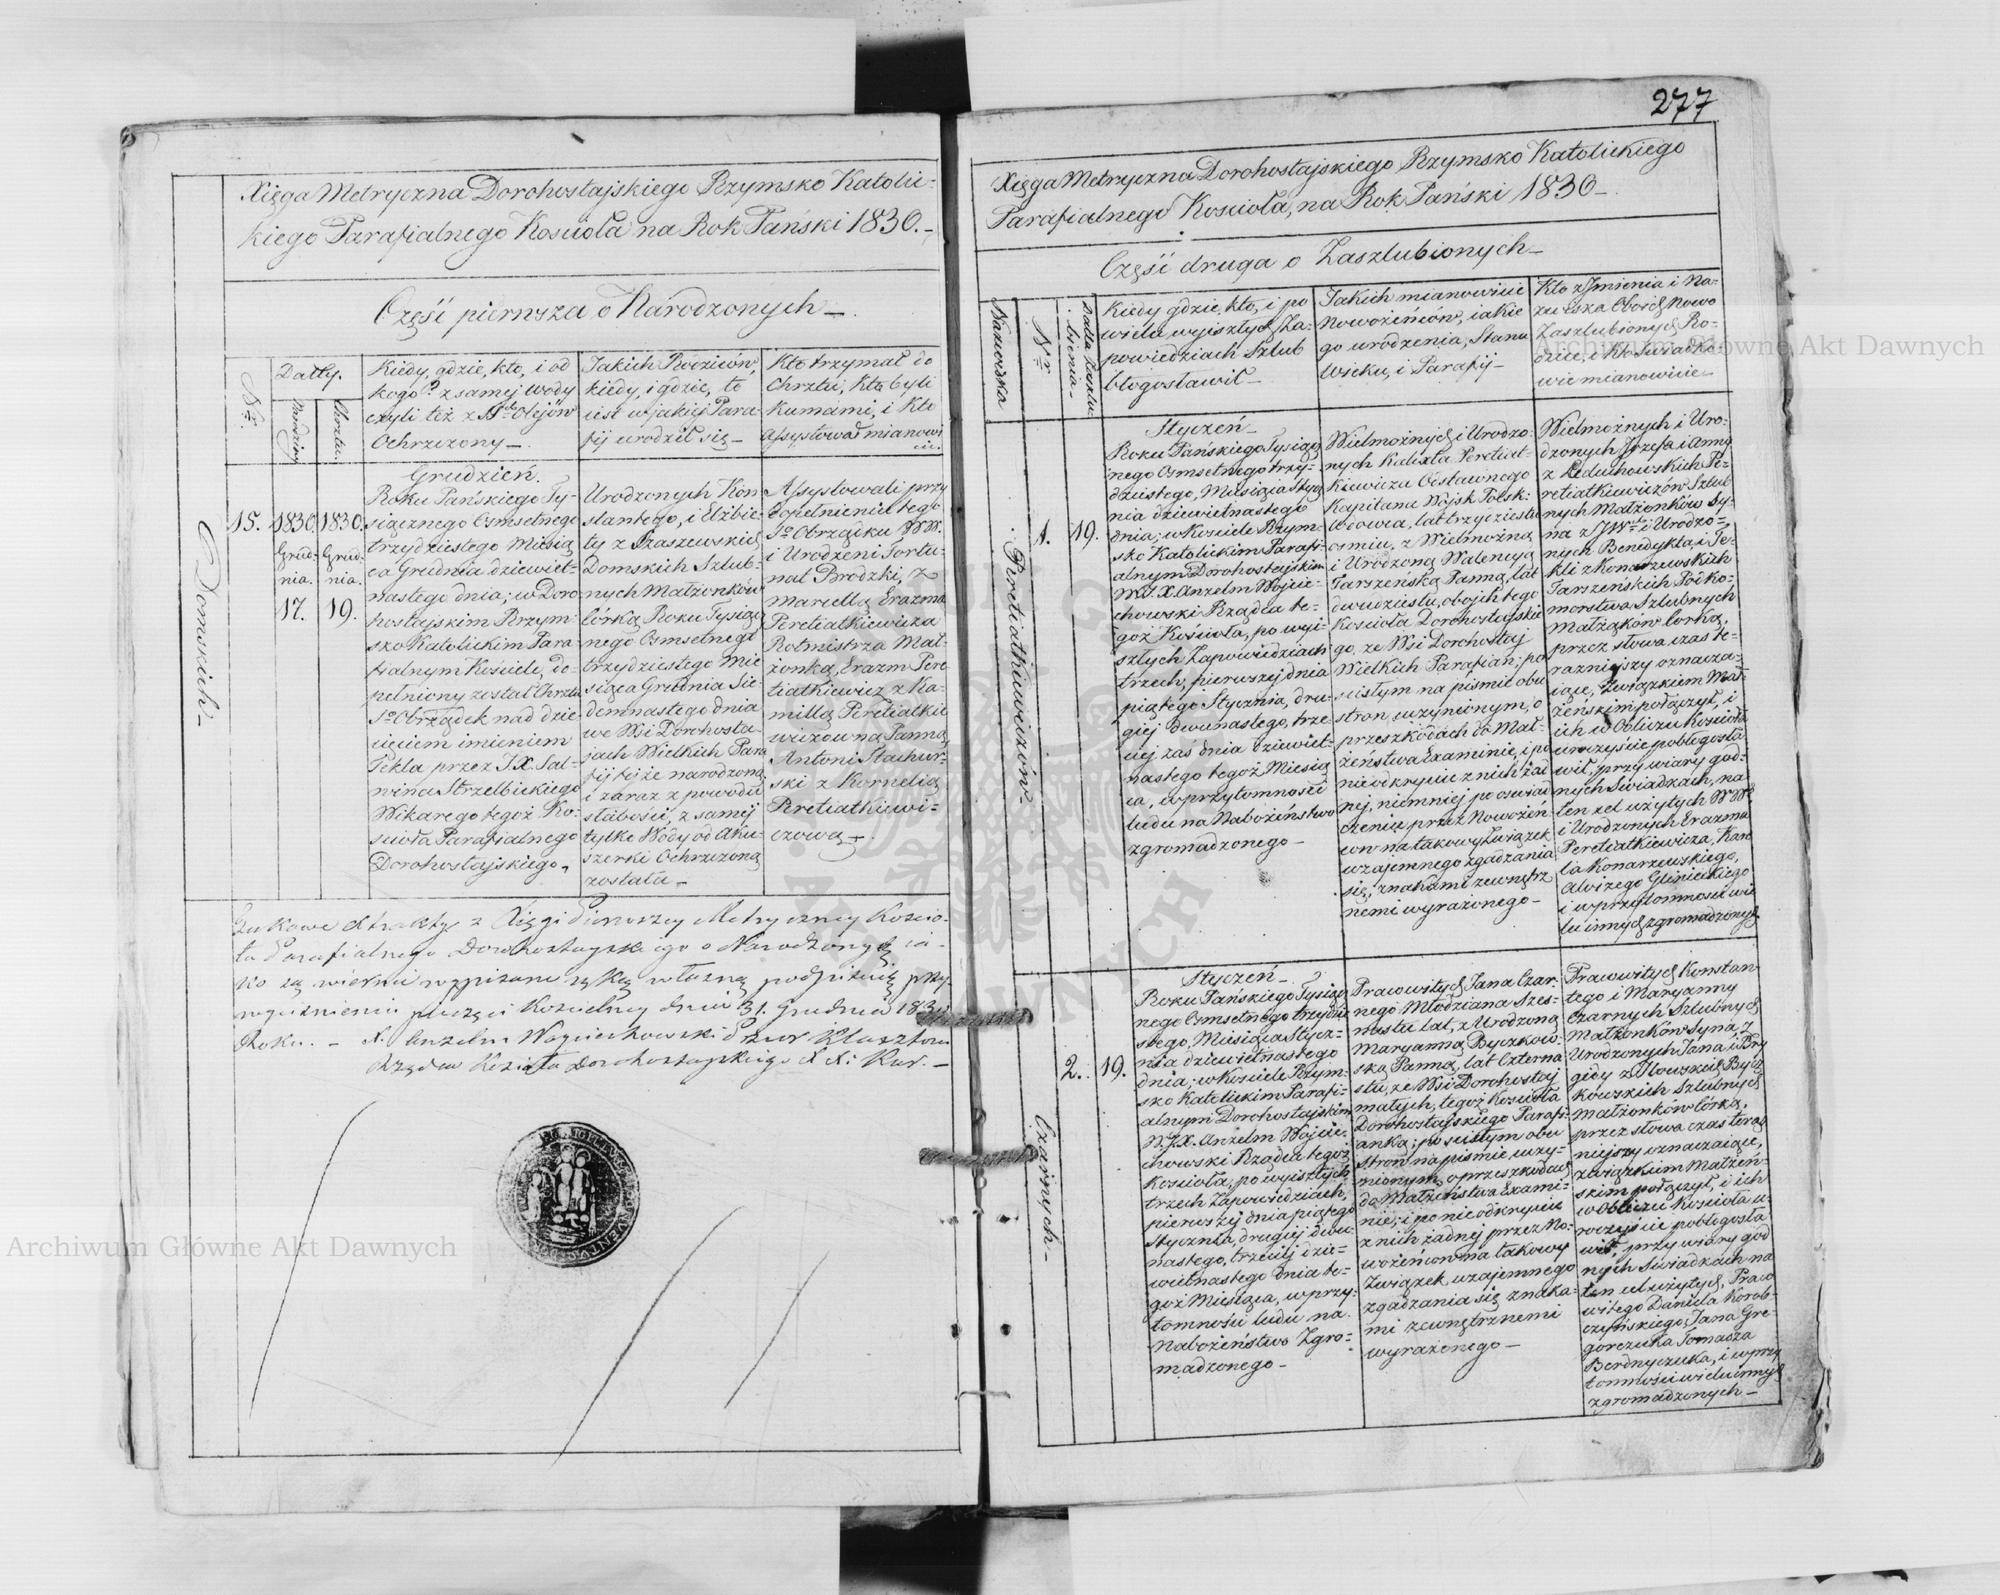 277
Xięga Metryczna Dorohostajskiego Rzymsko Katolic-
kiego Parafialnego Kościoła na Rok Pański 1830.
Część pierwsza o Narodzonych
Nr.
Datty.
Narodzin
Chrztu.
Kiedy, gdzie, kto, i od
kogo? z samej wody
czyli też z S. Olejów
Ochrzczony
Jakich Rodziców,
kiedy, i gdzie, to
iest w jakiej Para-
fij urodził się
Kto trzymał do
Chrztu, Kto byli
Kumami, i Kto
Assystował mianowi
cie.
Domskich
15.
1830
Grud-
nia.
17.
1830.
Grud-
nia.
19.
Grudzień.
Roku Pańskiego Ty-
siącznego Osmsetnego
trzydziestego Miesią-
ca Grudnia dziewięt-
nastego dnia; w Doro
hostajskim Rzym-
sko Katolickim Para
fialnym Kościele, do-
pełniony został Chrztu
So Obrządek nad dzie
cięciem imieniem
Tekla przez J.X. Sal-
wina Strzelbickiego
Wikarego tegoż Ko-
ścioła Parafialnego
Dorohostajskiego
Urodzonych Kon
stantego, i Elżbie-
ty z Szaszewskich
Domskich Szlub-
nych Małżonków
córka, Roku Tysiącz
nego Osmsetnego
trzydziestego Mie
siąca Grudnia Sie-
demnastego dnia
we Wsi Dorohosta-
jach Wielkich Para
fij tejże narodzona
i zaraz z powodu
słabości, z samej
tylko Wody od Aku-
szerki Ochrzczoną
została
Assystowali przy
dopełnieniu tego
So Obrządku WW.
i Urodzeni Fortu-
nat Brodzki, z
Marcellą Erazma
Peretiatkiewicza
Rotmistrza Mał-
żonką, Erazm Pere
tiatkiewicz z Ka-
millą Peretiatkie
wiczowną Panną,
Antoni Stachur-
ski z Kornelią
Peretiatkiewi-
czową
Xięgi Pierwszey Metryczney Kościo-
ła Parafialnego Dorohostayskiego o Narodzonych ia-
ko są wiernie wypisane ręką własną podpisuię przy
wycisnieniu pieczęci Kościelney dnia 31. Grudnia 1830
Roku. - X. Anzelm Woyciechowski Przeor Klasztoru
Rządca Kościoła Dorohostayskiego
Xięga Metryczna Dorohostajskiego Rzymsko Katolickiego
Parafialnego Kościoła, na Rok Pański 1830
Część druga o Zaszlubionych
Nazwiska
Nr.
Kiedy gdzie, kto, i po
wielu wyjsztych Za-
powiedziach Szlub
błogosławił
Jakich mianowicie
Nowożeńców, iakie
go urodzenia, Stanu
Wieku, i Parafij
Kto z Jmienia i Na-
zwiska Oboich Nowo
Zaszlubionych Ro-
dzice, i Kto Swiadka-
wie mianowicie
Peretiatkiewiczów
1.
19.
Styczeń
Roku Pańskiego Tysiącz
nego Osmsetnego trzy-
dziestego, Miesiąca Stycz
nia dziewiętnastego
dnia; w Kościele Rzym-
sko Katolickim Parafi-
alnym Dorohostajskim
W.J.X. Anzelm Wojcie-
chowski Rządca te-
goż Kościoła, po wyi-
sztych Zapowiedziach
trzech, pierwszej dnia
piątego Stycznia, dru-
giej dwunastego, trze
ciej zaś dnia dziewięt-
nastego tegoż Miesią
ca, w przytomności
ludu na Nabożeństwo
zgromadzonego
Wielmożnych i Urodzo-
nych Kalixta Peretiat-
kiewicza Odstawnego
Kapitana Wojsk Polsk:
Wdowca, lat trzydziestu
osmiu, z Wielmożną
i Urodzoną Walencyą
Tarszeńską Panną, lat
dwudziestu, obojch tego
Kościoła Dorohostajskie
go, ze Wsi Dorohostaj
Wielkich Parafian; po
scisłym na piśmie obu
stron uczynionym, o
przeszkodach do Mał-
żeństwa Examinie, i po
nieodkryciu z nich żad
nej, niemniej po oswiad
czeniu przez Nowożeń
ców na takowy Związek
wzajemnego zgadzania
się, znakami zewnętrz
nemi wyrażonego
Wielmożnych i Uro-
dzonych Jozefa i Anny
z Leduchowskich Pe-
retiatkiewiczów Szlub
nych Małżonków Sy-
na z JW. i Urodzo-
nych Benedykta, i Te-
kli z Konarzewskich
Tarszeńskich Podko-
morstwa Szlubnych
Małżonków Córką,
przez słowa czas te-
razniejszy oznacza-
iące, Związkiem Mał-
żeńskim połączył, i
ich w Obliczu Kościoła
uroczyscie pobłogosła
wił, przy wiary god-
nych Swiadkach, na
ten cel użytych WW.
i Urodzonych Erazma
Peretiatkiewicza, Karo
la Konarzewskiego,
Alwizego Glinieckiego
i w przytomności wie
lu innych zgromadzonych
Czarnych
2.
19.
Styczeń
Roku Pańskiego Tysiącz
nego Osmsetnego trzydzie
stego, Miesiąca Stycz-
nia dziewiętnastego
dnia; w Kościele Rzym-
sko Katolickim Parafi-
alnym Dorohostajskim
W.J.X. Anzelm Wojcie-
chowski Rządca tegoż
Kościoła, po wyisztych
trzech Zapowiedziach,
pierwszej dnia piątego
Stycznia, drugiej dwu-
nastego, trzeciej dzie-
więtnastego dnia te-
goż Miesiąca, w przy-
tomności ludu na
Nabożeństwo Zgro-
madzonego
Prawowitych Jana Czar-
nego Młodziana Szes-
nastu lat, z Urodzoną
Maryanną Byczkow-
ską Panną, lat Czterna
stu, ze Wsi Dorohostaj
małych, tegoż Kościoła
Dorohostajskiego Parafi-
anką; po scisłym obu
stron na piśmie uczy-
nionym, o przeszkodach
do Małżeństwa Exami-
nie; i po nieodkryciu
z nich żadnej przez No-
wożeńców na takowy
Związek wzajemnego
zgadzania się znaka-
mi zewnętrznemi
wyrażonego
Prawowitych Konstan
tego i Maryanny
Czarnych Szlubnych
Małżonków Syna, z
Urodzonych Jana i Bry
gidy z Iłowskich Bycz
kowskich Szlubnych
Małżonków Córką,
przez słowa czas teraz
niejszy oznaczaiące,
związkiem Małżeń-
skim połączył, i ich
w Obliczu Kościoła u-
roczyscie pobłogosła
wił, przy wiary god
nych Swiadkach na
ten cel użytych, Prawo
witego Daniela Korob-
czyńskiego, Jana Gre-
gorczuka Tomasza
Berdnyczuka, i w przy
tomności wielu innych
zgromadzonych
Archiwum Główne Akt Dawnych
Archiwum Główne Akt Dawnych